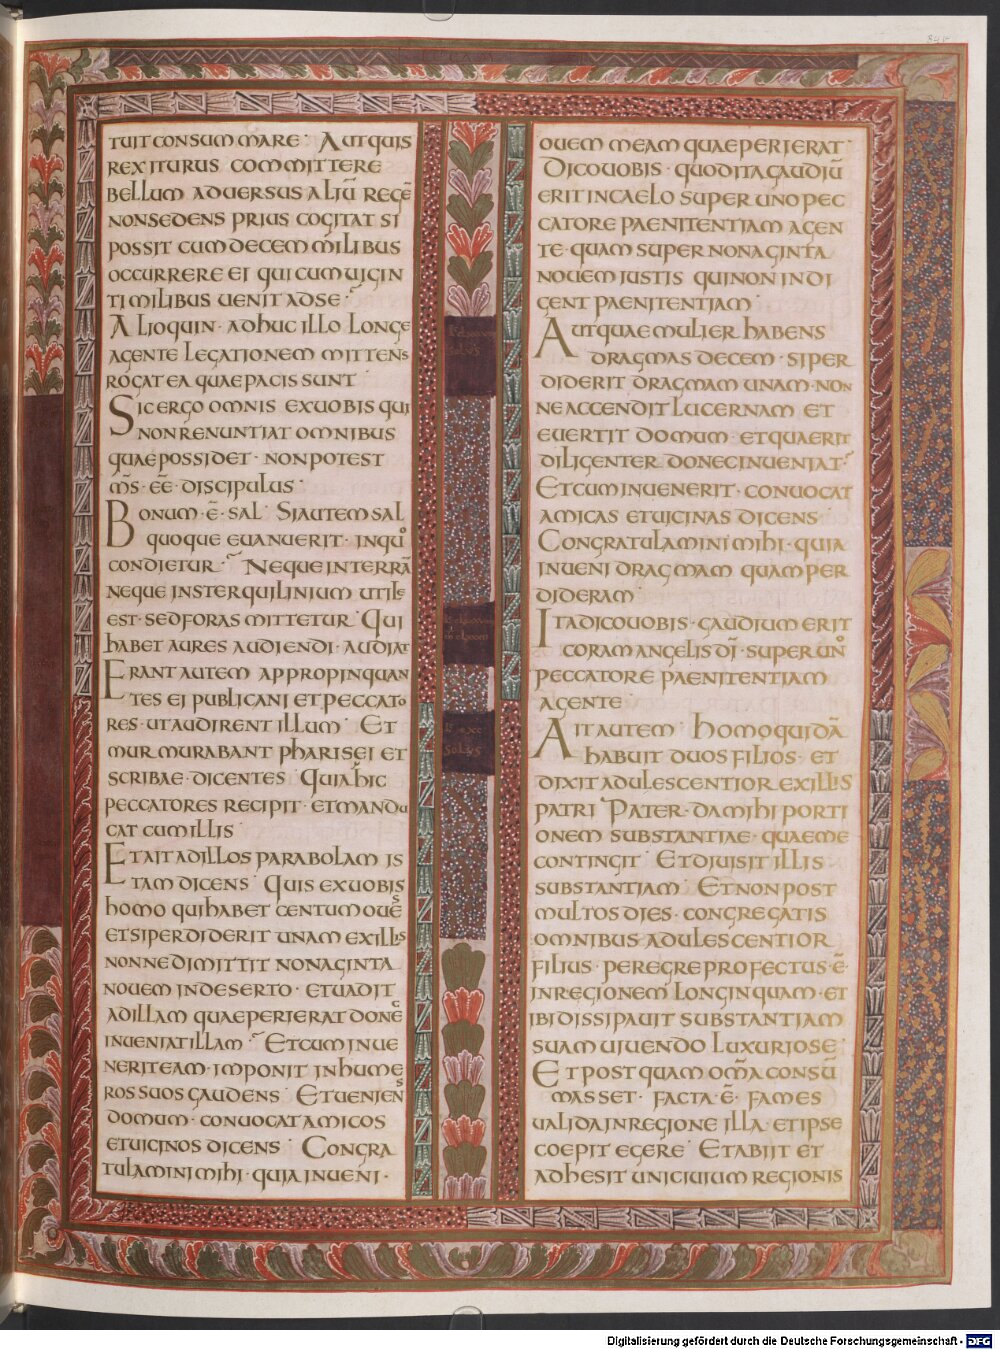 TUIT CONSUMMARE · AUT QUIS
REX ITURUS COMMITTERE
BELLUM ADVERSUS ALIŪ REGĒ
NON SEDENS PRIUS COGITAT SI
POSSIT CUM DECEM MILIBUS
OCCURRERE EI QUI CUM UIGIN
TI MILIBUS UENIT AD SE ·
ALIOQUIN · ADHUC ILLO LONGE
AGENTE LEGATIONEM MITTENS
ROGAT EA QUAE PACIS SUNT ·
SIC ERGO OMNIS EX UOBIS QUI
NON RENUNTIAT OMNIBUS
QUAE POSSIDET · NON POTEST
M̄S · EĒ DISCIPULUS ·
BONUM · Ē · SAL · SI AUTEM SAL
QUOQUE EUANUERIT · IN QUO
CONDIETUR · NEQUE IN TERRĀ
NEQUE IN STERQUILINIUM UTILE
EST · SED FORAS MITTETUR · QUI
HABET AURES AUDIENDI · AUDIAT
ERANT AUTEM APPROPINQUAN
TES EI PUBLICANI ET PECCATO
RES · UT AUDIRENT ILLUM · ET
MURMURABANT PHARISEI ET
SCRIBAE · DICENTES · QUIA HIC
PECCATORES RECIPIT · ET MANDU
CAT CUM ILLIS
ET AIT AD ILLOS PARABOLAM IS
TAM DICENS · QUIS EX UOBIS
HOMO QUI HABET CENTUM OUES
ET SI PERDIDERIT UNAM EX ILLIS
NONNE DIMITTIT NONAGINTA
NOUEM IN DESERTO · ET UADIT
AD ILLAM QUAE PERIERAT DONEC
INUENIAT ILLAM · ET CUM INUE
NERIT EAM · IMPONIT IN HUME
ROS SUOS GAUDENS · ET UENIENS
DOMUM · CONUOCAT AMICOS
ET UICINOS DICENS · CONGRA
TULAMINI MIHI · QUIA INUENI ·
OUEM MEAM QUAE PERIERAT ·
DICO UOBIS · QUOD ITA GAUDIŪ
ERIT IN CAELO SUPER UNO PEC
CATORE PAENITENTIAM AGEN
TE · QUAM SUPER NONAGINTA
NOUEM IUSTIS QUI NON INDI
GENT PAENITENTIAM ·
AUT QUAE MULIER HABENS
DRAGMAS DECEM · SI PER
DIDERIT DRAGMAM UNAM · NON
NE ACCENDIT LUCERNAM ET
EUERTIT DOMUM · ET QUAERIT
DILIGENTER DONEC INUENIAT ·
ET CUM INUENERIT · CONUOCAT
AMICAS ET UICINAS DICENS ·
CONGRATULAMINI MIHI · QUIA
INUENI DRAGMAM QUAM PER
DIDERAM ·
ITA DICO UOBIS · GAUDIUM ERIT
CORAM ANGELIS DĪ · SUPER UNO
PECCATORE PAENITENTIAM
AGENTE ·
AIT AUTEM · HOMO QUIDĀ
HABUIT DUOS FILIOS · ET
DIXIT ADULESCENTIOR EX ILLIS
PATRI · PATER · DA MIHI PORTI
ONEM SUBSTANTIAE · QUAE ME
CONTINGIT · ET DIUISIT ILLIS
SUBSTANTIAM · ET NON POST
MULTOS DIES · CONGREGATIS
OMNIBUS · ADULESCENTIOR
FILIUS · PEREGRE PROFECTUS · Ē ·
IN REGIONEM LONGINQUAM · ET
IBI DISSIPAUIT SUBSTANTIAM
SUAM UIUENDO LUXURIOSE ·
ET POSTQUAM OM̄A CONSŪ
MASSET · FACTA · Ē · FAMES
UALIDA IN REGIONE ILLA · ET IPSE
COEPIT EGERE · ET ABIIT ET
ADHESIT UNI CIUIUM REGIONIS
Digitalisierung gefördert durch die Deutsche Forschungsgemeinschaft - DFG